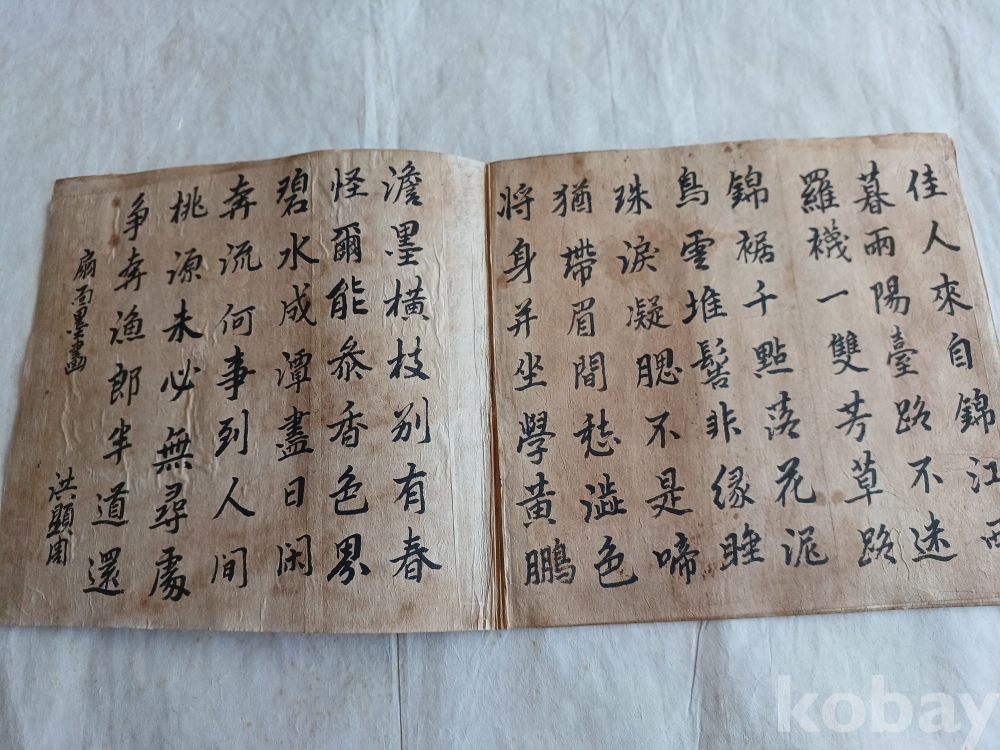 佳人來自錦江西
暮雨陽臺路不迷
羅襪一雙芳草路
錦裾千點落花泥
鳥雲堆髻非緣睡
珠淚凝腮不是啼
猶帶眉間愁澁色
將身并坐學黃鵬
澹墨橫枝別有春
怪爾能叅香色界
碧水成潭盡日闲
奔流何事到人间
桃源未必無尋處
爭奔漁郎半道還
扇面墨畵
洪顯周
kobay